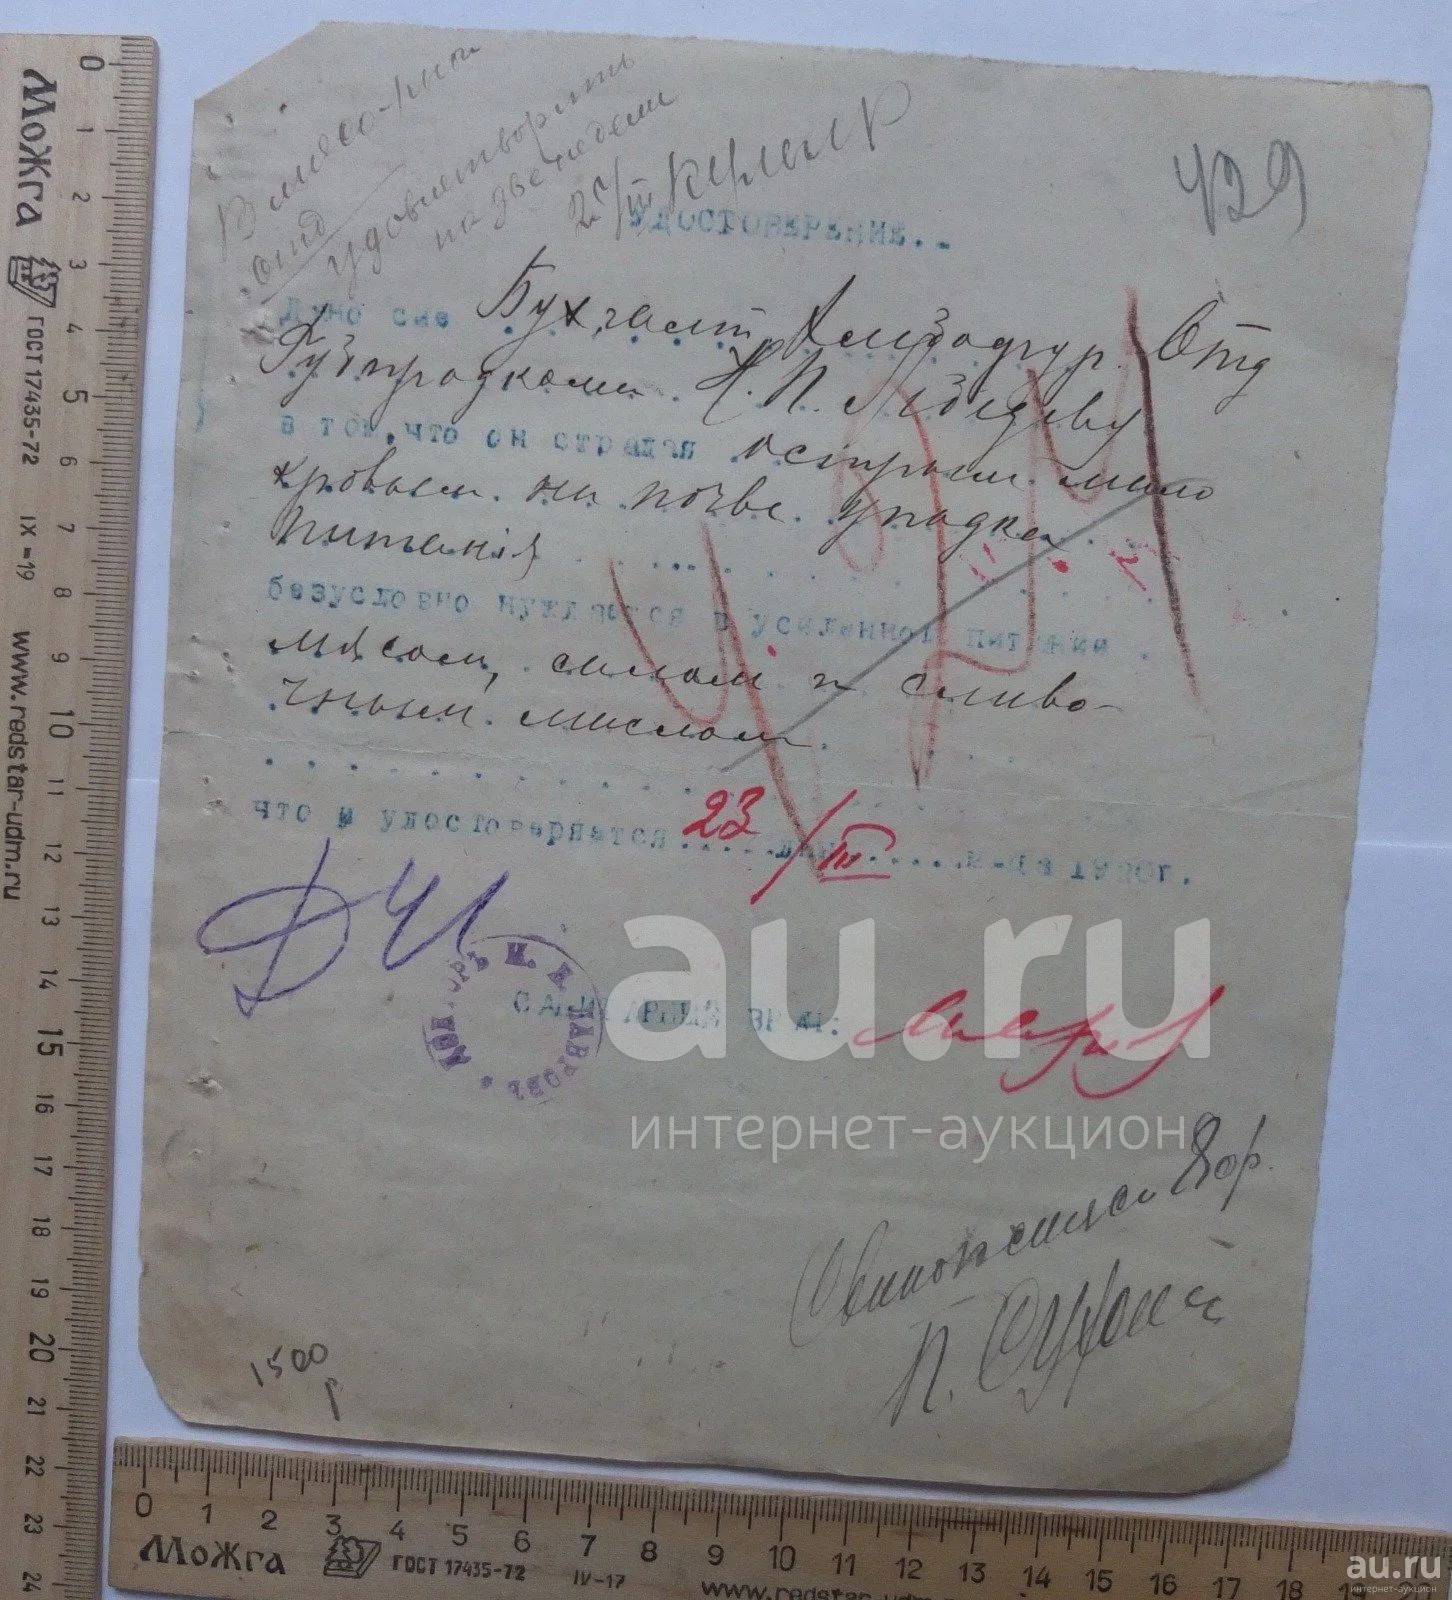 429
В мясо-
отд
удовлетворить
на две недели
25/III
УДОСТОВЕРЕНИЕ.-
Дано сие Бухгалт. Отд
Губпродкома Н. П. Лебедеву
в том,что он страдая острым мало
кровием на почве упадка
питанія
безусловно нуждается в усиленном питание
мясом, салом и сливо-
чным маслом
что и удостоверяется 23/III 1920г.
САНИТАРНЫЙ ВРАЧ:
ЛАВРОВЪ
П.
1500
au.ru
интернет-аукцион
МоЖга
ГОСТ 17435-72
IX-19
www.redstar-udm.ru
0 1 2 3 4 5 6 7 8 9 10 11 12 13 14 15 16 17 18 19 20 21 22 23 24
0 1 2 3 4 5 6 7 8 9 10 11 12 13 14 15 16 17 18
МоЖга
ГОСТ 17435-72
IV-17
au.ru
интернет-аукцион